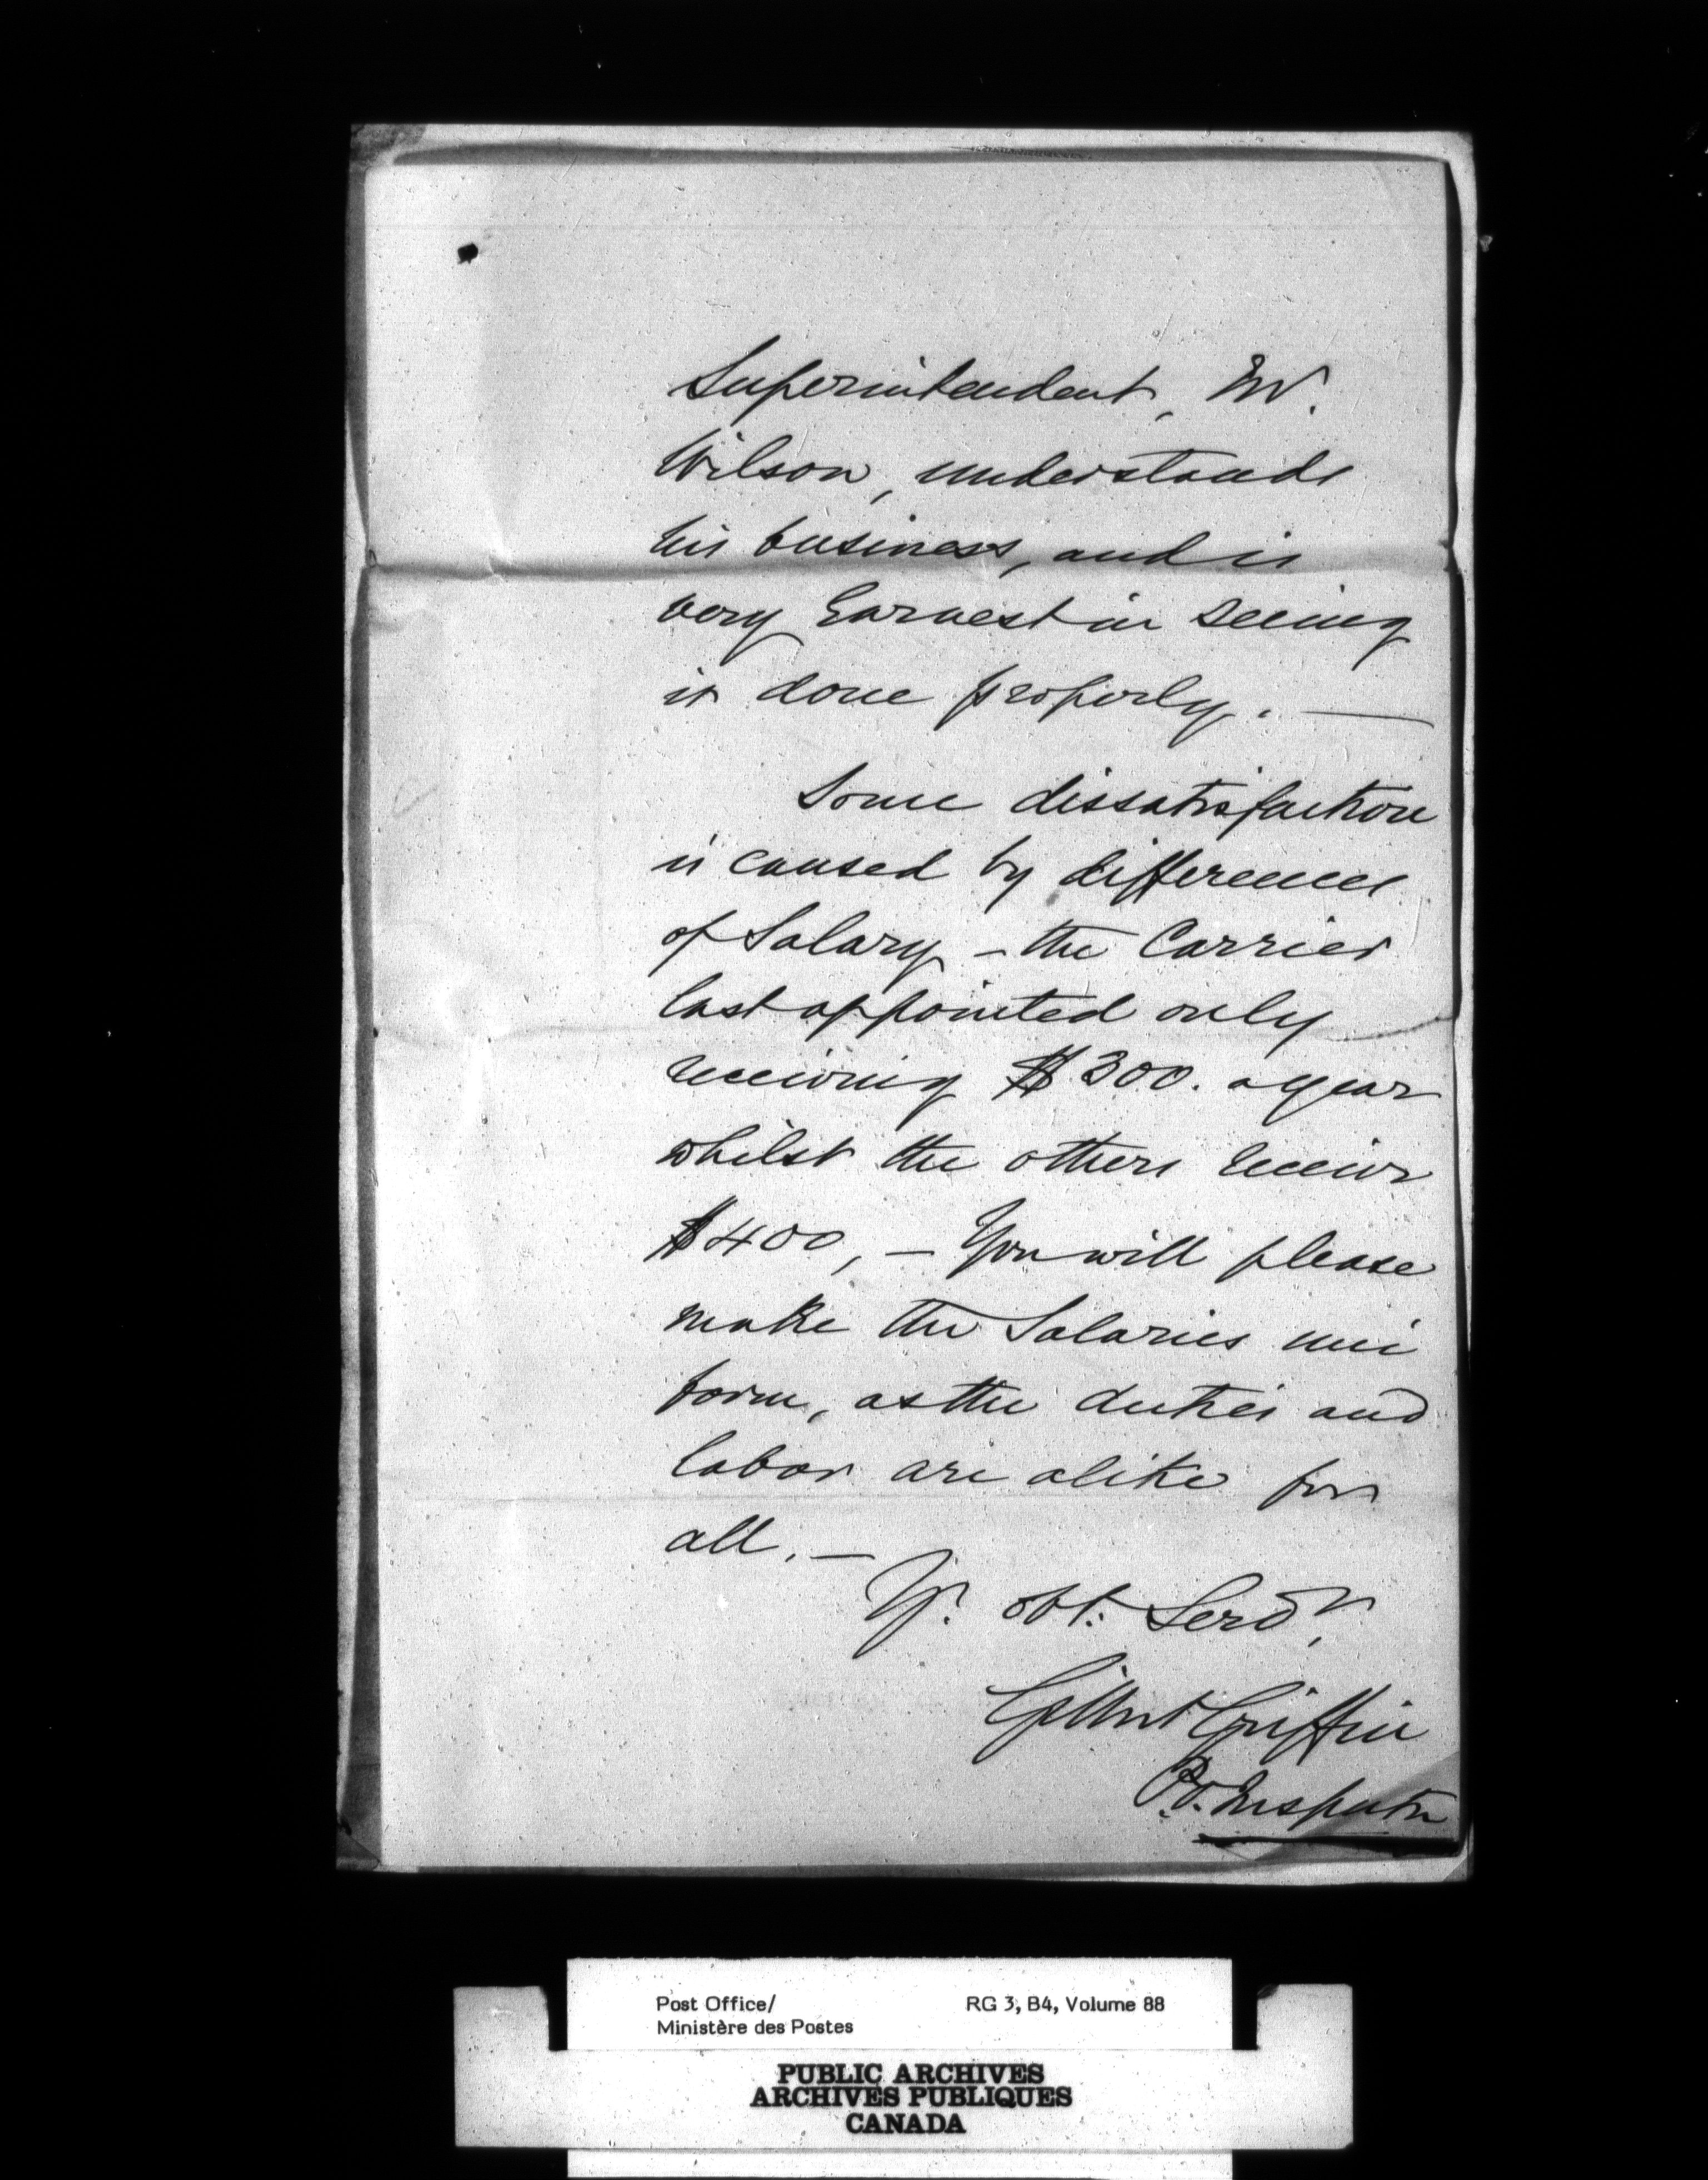 Superintendent, Mr.
Wilson, understands
his business, and is
very Earnest in seeing
it done properly. —
Some dissatisfaction
is caused by difference
of Salary – the Carrier
last appointed only
receiving $300. a year
whilst the others receive
$400, – You will please
make the Salaries uni
form, as the duties and
labor are alike for
all. —
Yr. obt: Servt,
Gilbert Griffin
P.O. Inspector
Post Office/
RG 3, B4, Volume 88
Ministère des Postes
PUBLIC ARCHIVES
ARCHIVES PUBLIQUES
CANADA